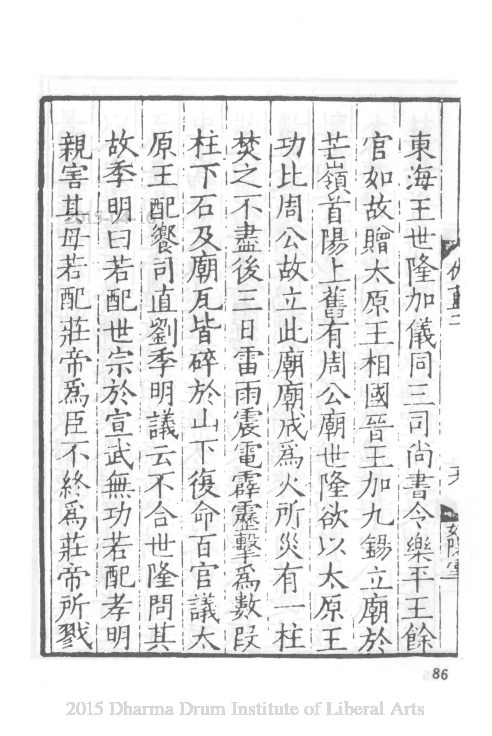 東海王世隆加儀同三司尚書令樂平王餘
官如故贈太原王相國晉王加九錫立廟於
芒嶺首陽上舊有周公廟世隆欲以太原王
功比周公故立此廟廟成爲火所災有一柱
焚之不盡後三日雷雨震電霹靂擊爲數段
柱下石及廟瓦皆碎於山下復命百官議太
原王配饗司直劉季明議云不合世隆問其
故季明曰若配世宗於宣武無功若配孝明
親害其母若配莊帝爲臣不終爲莊帝所戮
86
2015 Dharma Drum Institute of Liberal Arts